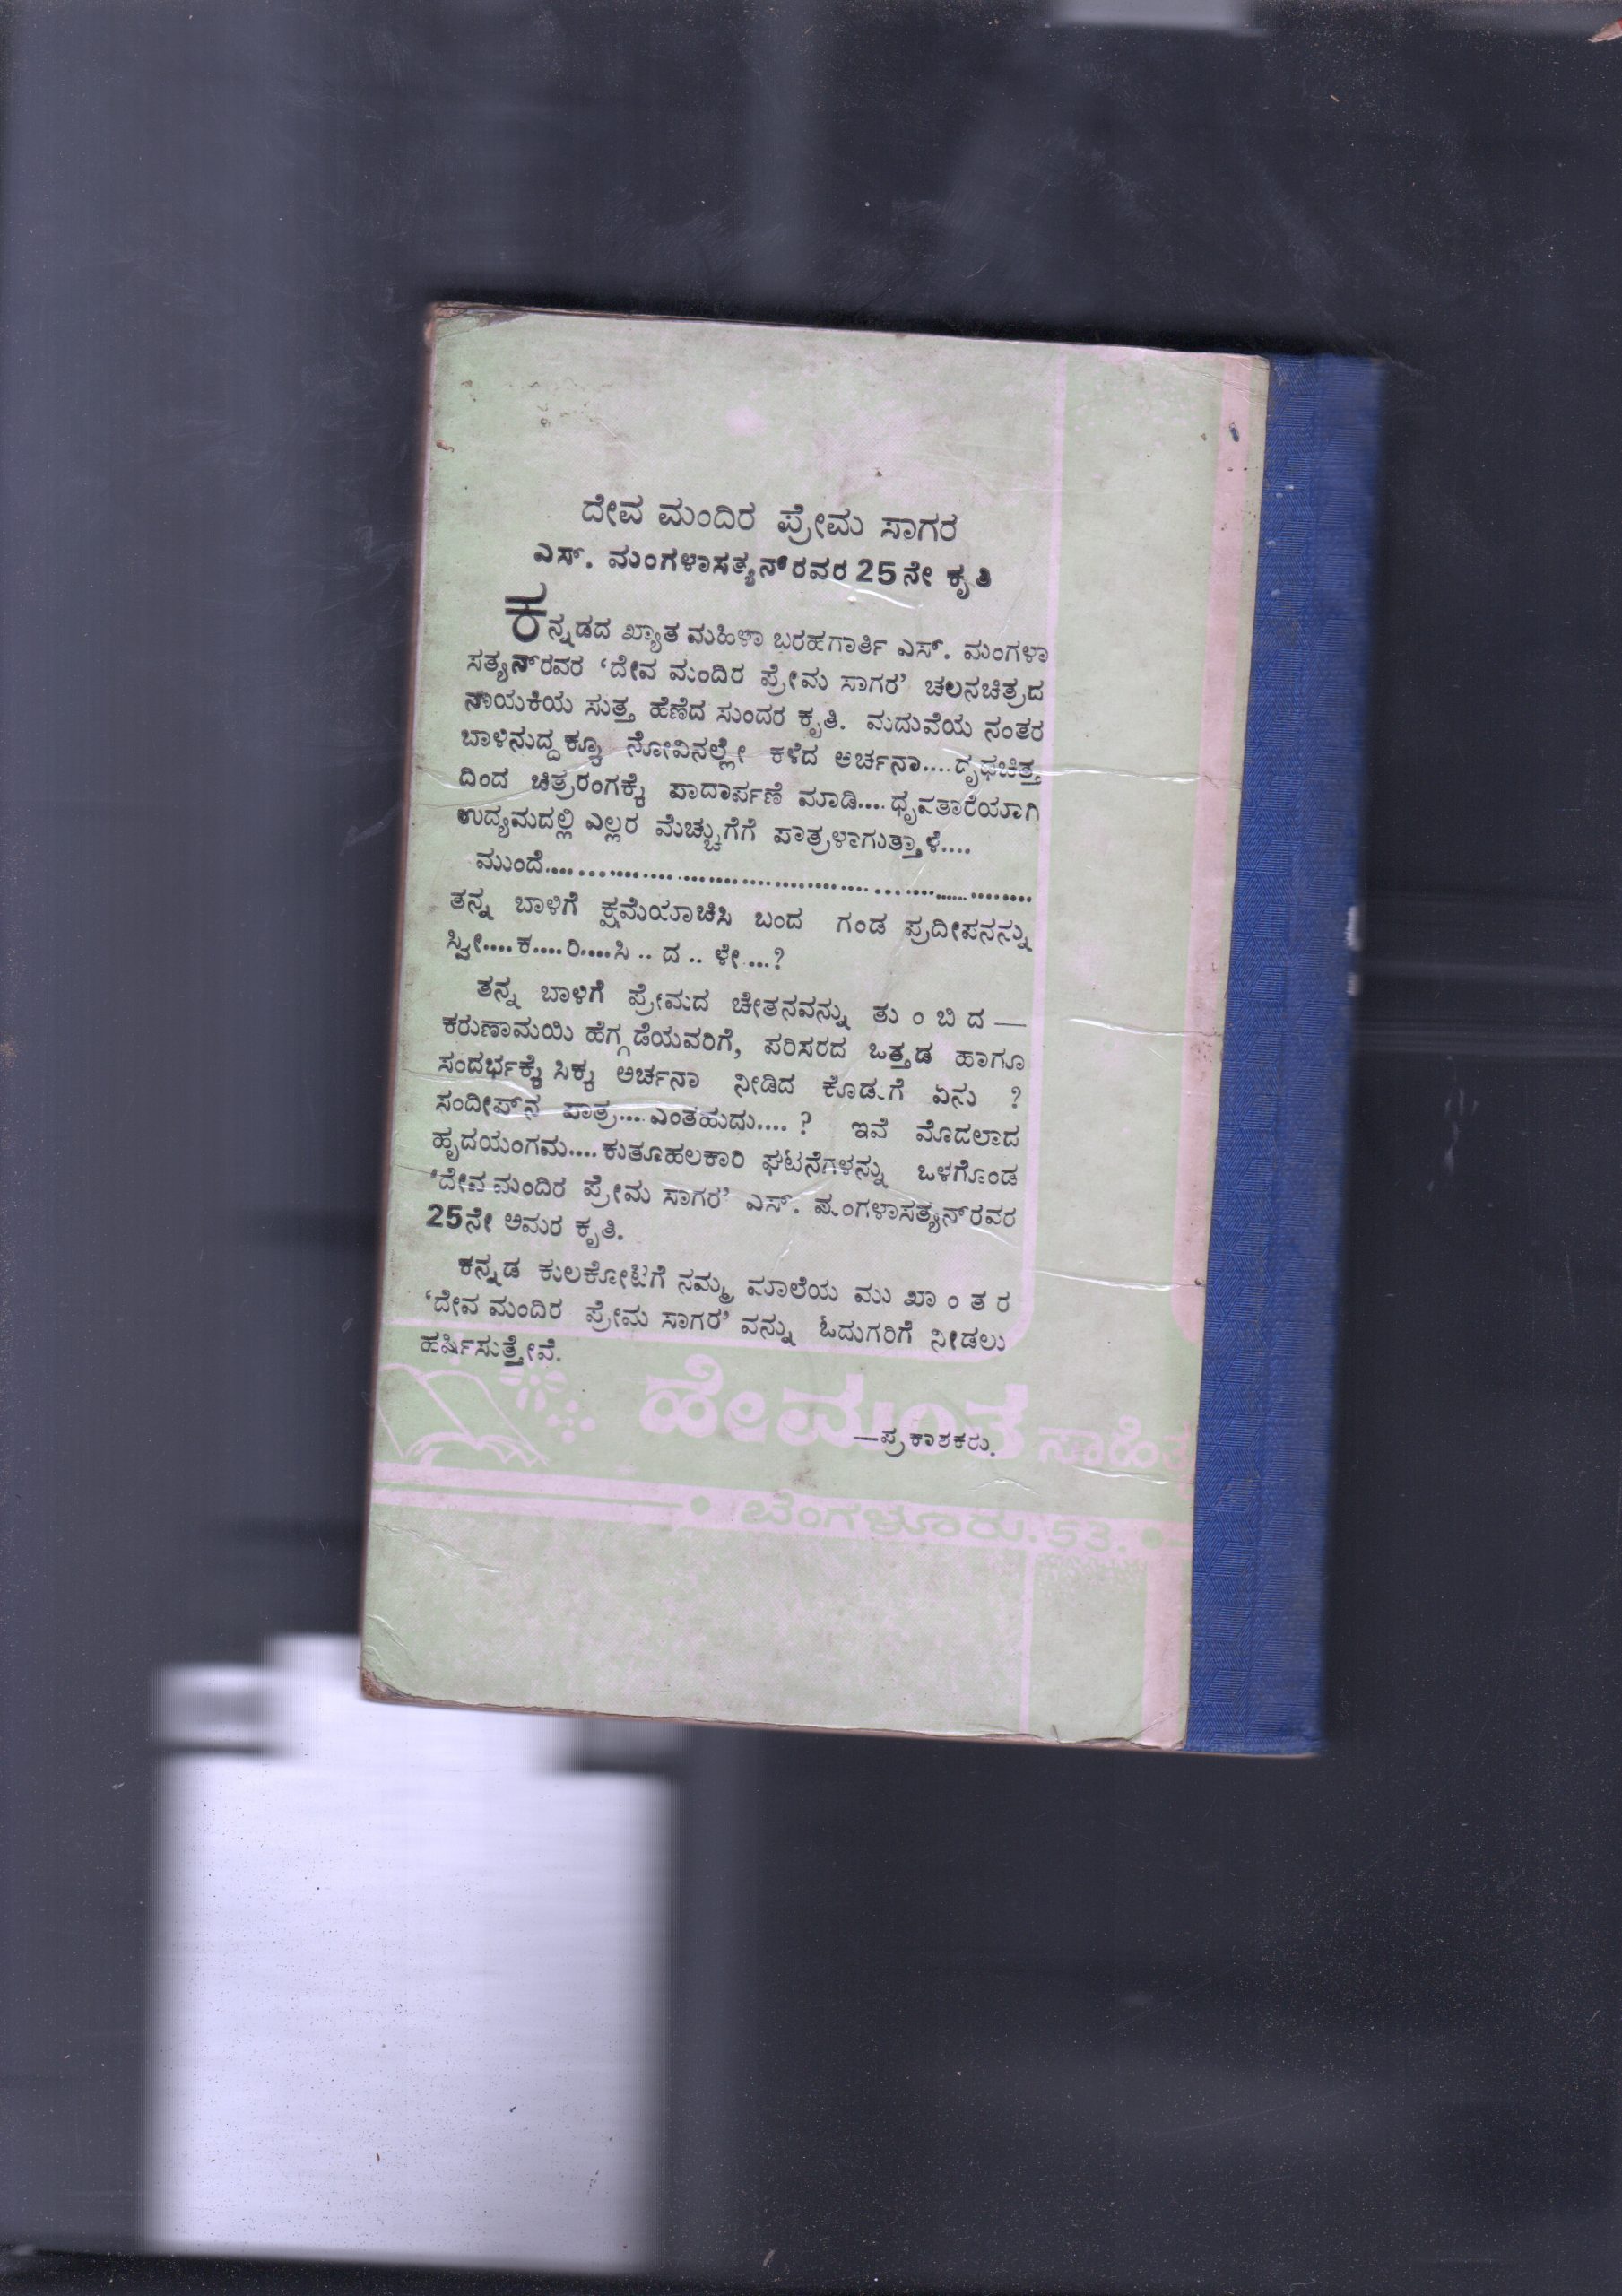 ದೇವ ಮಂದಿರ ಪ್ರೇಮ ಸಾಗರ
ಎಸ್. ಮಂಗಳಾಸತ್ಯನ್‌ರವರ 25ನೇ ಕೃತಿ
ಕನ್ನಡದ ಖ್ಯಾತ ಮಹಿಳಾ ಬರಹಗಾರ್ತಿ ಎಸ್. ಮಂಗಳಾ
ಸತ್ಯನ್‌ರವರ ‘ದೇವ ಮಂದಿರ ಪ್ರೇಮ ಸಾಗರ’ ಚಲನಚಿತ್ರದ
ನಾಯಕಿಯ ಸುತ್ತ ಹೆಣೆದ ಸುಂದರ ಕೃತಿ. ಮದುವೆಯ ನಂತರ
ಬಾಳಿನುದ್ದಕ್ಕೂ ನೋವಿನಲ್ಲೇ ಕಳೆದ ಅರ್ಚನಾ....ದೃಢಚಿತ್ತ
ದಿಂದ ಚಿತ್ರರಂಗಕ್ಕೆ ಪಾದಾರ್ಪಣೆ ಮಾಡಿ....ಧೃವತಾರೆಯಾಗಿ
ಉದ್ಯಮದಲ್ಲಿ ಎಲ್ಲರ ಮೆಚ್ಚುಗೆಗೆ ಪಾತ್ರಳಾಗುತ್ತಾಳೆ....
ಮುಂದೆ........................................................................
ತನ್ನ ಬಾಳಿಗೆ ಕ್ಷಮೆಯಾಚಿಸಿ ಬಂದ ಗಂಡ ಪ್ರದೀಪನನ್ನು
ಸ್ವೀ....ಕ....ರಿ....ಸಿ .. ದ .. ಳೇ ...?
ತನ್ನ ಬಾಳಿಗೆ ಪ್ರೇಮದ ಚೇತನವನ್ನು ತು ಂ ಬಿ ದ —
ಕರುಣಾಮಯಿ ಹೆಗ್ಗಡೆಯವರಿಗೆ, ಪರಿಸರದ ಒತ್ತಡ ಹಾಗೂ
ಸಂದರ್ಭಕ್ಕೆ ಸಿಕ್ಕ ಅರ್ಚನಾ ನೀಡಿದ ಕೊಡುಗೆ ಏನು ?
ಸಂದೀಪ್‌ನ ಪಾತ್ರ....ಎಂತಹುದು....? ಇವೆ ಮೊದಲಾದ
ಹೃದಯಂಗಮ....ಕುತೂಹಲಕಾರಿ ಘಟನೆಗಳನ್ನು ಒಳಗೊಂಡ
‘ದೇವ ಮಂದಿರ ಪ್ರೇಮ ಸಾಗರ’ ಎಸ್. ಮಂಗಳಾಸತ್ಯನ್‌ರವರ
25ನೇ ಅಮರ ಕೃತಿ.
ಕನ್ನಡ ಕುಲಕೋಟಿಗೆ ನಮ್ಮ ಮಾಲೆಯ ಮು ಖಾ ಂ ತ ರ
‘ದೇವ ಮಂದಿರ ಪ್ರೇಮ ಸಾಗರ’ ವನ್ನು ಓದುಗರಿಗೆ ನೀಡಲು
ಹರ್ಷಿಸುತ್ತೇವೆ.
ಹೇಮಂತ ಸಾಹಿತ್ಯ
—ಪ್ರಕಾಶಕರು.
• ಬೆಂಗಳೂರು.53. •